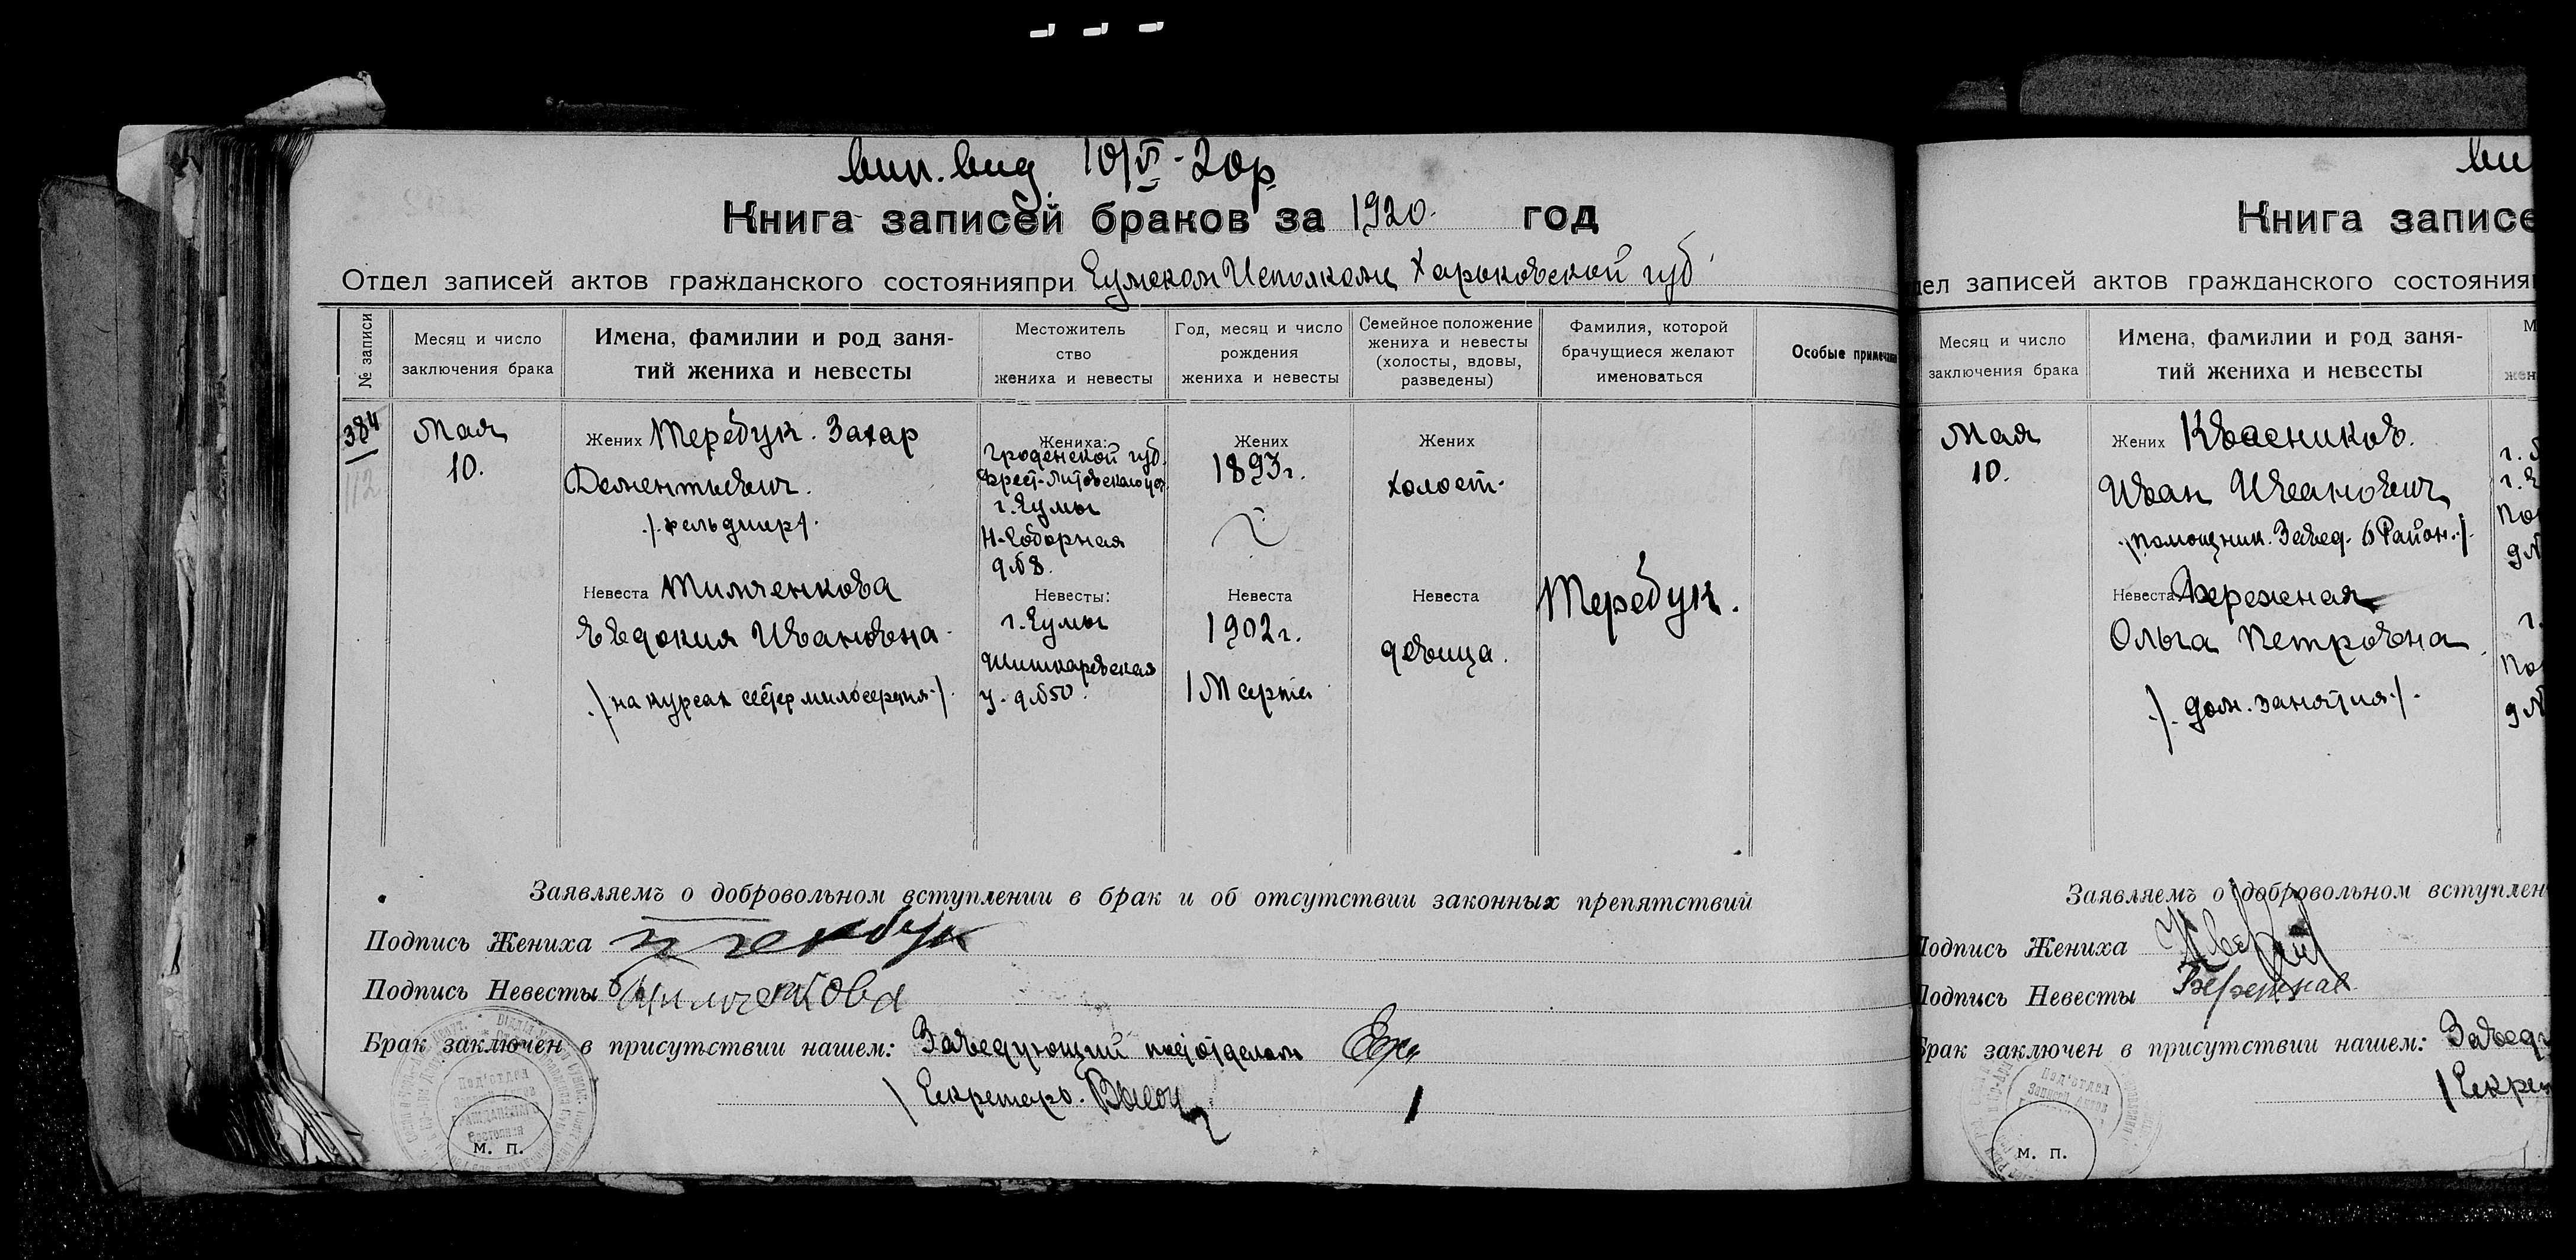 вип. вид 10/V-20р
Книга записей браков за 1920. год
Отдел записей актов гражданского состоянияпри Сумском Исполкоме Харьковской губ.
№ записи
Месяц и число заключения брака
Имена, фамилии и род заня-
тий жениха и невесты
Местожитель
ство
жениха и невесты
Год, месяц и число
рождения
жениха и невесты
Семейное положение
жениха и невесты
(холосты, вдовы,
разведены)
Фамилия, которой
брачущиеся желают
именоваться
Особые примечания
384
112
Мая
10.
Жених Теребук. Захар
Дементьевич.
/фельдшер/.
Невеста Тимченкова
Евдокия Ивановна
/на курсах сестер милосердия/.
Жениха:
Гродненской губ.
Брест-Литовского уез
г. Сумы
Н-Соборная
д №8.
Невесты:
г. Сумы
Шишкаревская
у. д №50.
Жених
1893г.
Невеста
1902г.
1 Марта
Жених
холост.
Невеста
девица.
Теребук.
Заявляемъ о добровольном вступлении в брак и об отсутствии законных препятствий
Подпись Жениха
Подпись Невесты Тимченкова
Брак заключен в присутствии нашем: Заведующий подотделом
/Секретарь.
м. п.
ви
Книга записе
дел записей актов гражданского состояния
Месяц и число
заключения брака
Имена, фамилии и род заня-
тий жениха и невесты
М
жен
Мая
10.
Жених Квасников.
Иван Иванович
/помощник. Завед. 6 Район./.
Невеста Бережная
Ольга Петровна
/. дом. занятия/.
Заявляемъ о добровольном вступлен
Подпись Жениха
Подпись Невесты Бережная
Брак заключен в присутствии нашем: Завед
/Секре
Под'отдел
Записей Актов
м. п.